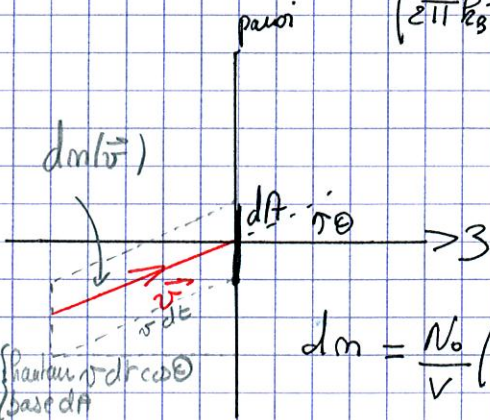 paroi
(2π k_B
dn(v⃗)
dA
θ
>z
v⃗
v dt
dn = N₀/V (
{hauteur v dt cos θ
base dA